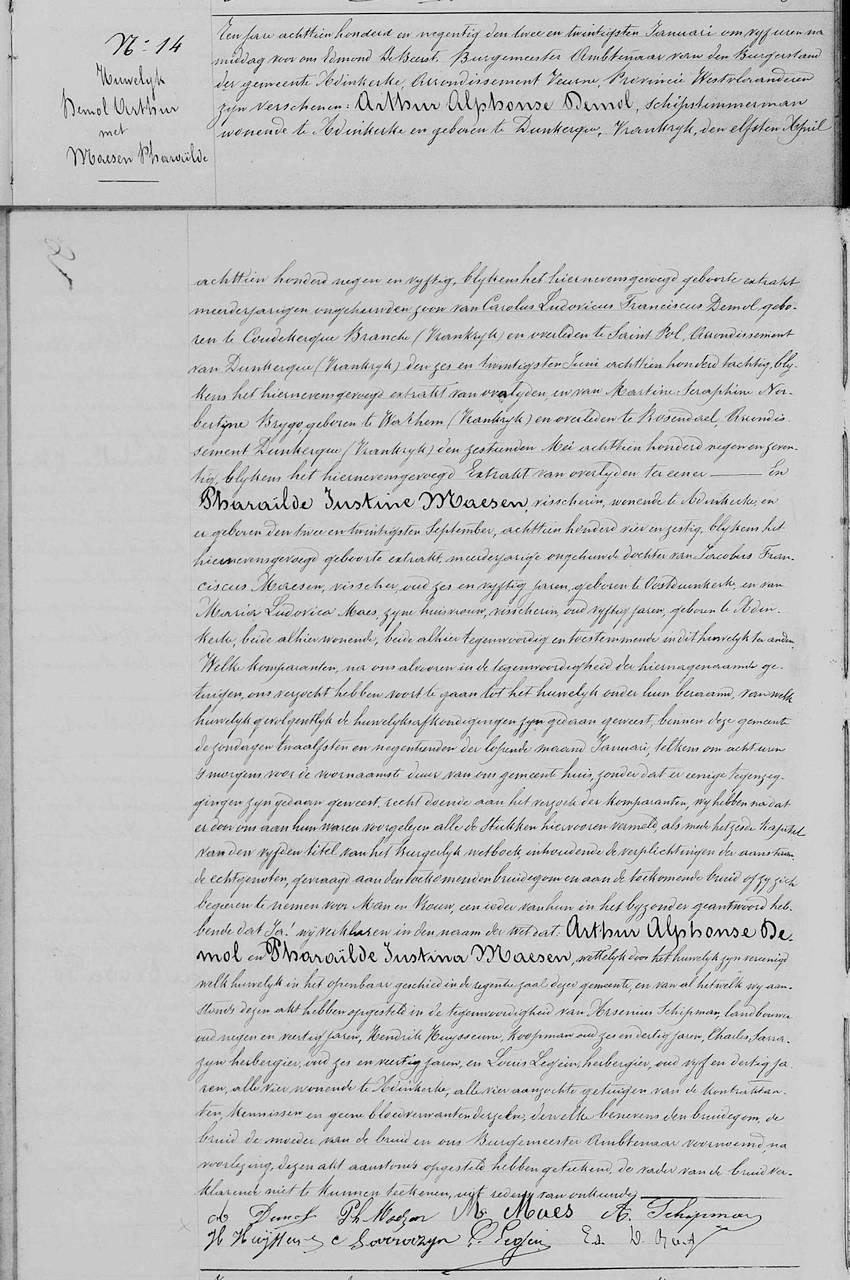 N° 14
Huwelyk
Demol Arthur
met
Maesen Pharaïlde
Ten jare achttien honderd en negentig den twee en twintigsten Januari om vyf uren na
middag voor ons Edmond De Beest, Burgemeester Ambtenaar van den Burgerstand
der gemeente Adinkerke, Arrondissement Veurne, Provincie Westvlaanderen
zyn verschenen: Arthur Alphonse Demol, schipstimmerman
wonende te Adinkerke en geboren te Dunkerque, Vrankryk, den elfsten April
achttien honderd negen en vyftig, blykens het hiernevensgevoegd geboorte extrakt
meerderjarigen ongehuwden zoon van Carolus Ludovicus Franciscus Demol, gebo-
ren te Coudekerque Branche (Vrankryk) en overleden te Saint Pol, Arrondissement
van Dunkerque (Vrankryk) den zes en twintigsten Juni achttien honderd tachtig, bly-
kens het hiernevensgevoegd extrakt van overlyden, en van Martine Seraphine Nor-
bertine Brygo, geboren te Warhem (Vrankryk) en overleden te Rosendael, Arrondis-
sement Dunkerque (Vrankryk) den zestienden Mei achttien honderd negen en zeven-
tig, blykens het hiernevensgevoegd Extrakt van overlyden ter eener ——— En
Pharaïlde Justine Maesen, visscherin, wonende te Adinkerke, en
er geboren den twee en twintigsten September, achttien honderd vier en zestig, blykens het
hiernevensgevoegd geboorte extrakt, meerderjarige ongehuwde dochter van Jacobus Fran-
ciscus Maesen, visscher, oud zes en vyftig jaren, geboren te Oostduinkerke, en van
Maria Ludovica Maes, zyne huisvrouw, visscherin, oud vyftig jaren, geboren te Adin-
kerke, beide alhier wonende, beide alhier tegenwoordig en toestemmende in dit huwelyk ter andere.
Welke komparanten, na ons alvooren in de tegenwoordigheid der hiernagenaamde ge-
tuigen, ons verzocht hebben voort te gaan tot het huwelyk onder hun beraamd, van welk
huwelyk gevolgentlyk de huwelyksafkondigingen zyn gedaan geweest, binnen deze gemeente
de zondagen twaalfsten en negentienden der lopende maand Januari, telkens om acht uren
s'morgens voor de voornaamste deur van ons gemeente huis, zonder dat er eenige tegenzeg-
gingen zyn gedaan geweest, recht doende aan het verzoek der komparanten, wy hebben nadat
er door ons aan hun waren voorgelezen alle de Stukken hiervooren vermeld, als mede het zesde kapittel
van den vyfden titel van het Burgerlyk wetboek, inhoudende de verplichtingen der aanstaan-
de echtgenoten, gevraagd aan den toekomenden bruidegom en aan de toekomende bruid of zy zich
begeeren te nemen voor Man en Vrouw, een ieder van hun in het byzonder geantwoord heb-
bende dat Ja! wy verklaren in den naam der Wet dat: Arthur Alphonse De-
mol en Pharaïlde Justina Maesen, wettelyk door het huwelyk zyn vereenigd
welk huwelyk in het openbaar geschied in de regentie zaal dezer gemeente, en van al hetwelk wy aan-
stonds dezen akt hebben opgesteld in de tegenwoordigheid van Arsenius Schipman, landbouwer
oud negen en veertig jaren, Hendrik Huyssevne, Koopman oud zes en dertig jaren, Charles Sarra-
zyn herbergier, oud zes en veertig jaren, en Louis Legein, herbergier, oud vyf en dertig ja-
ren, alle vier wonende te Adinkerke, alle vier aanzochte getuigen van de kontraktan-
ten, kennissen en geene bloedverwanten derzelve, derwelke benevens den bruidegom, de
bruid de moeder van de bruid en ons Burgemeester Ambtenaar voornoemd, na
voorlezing, dezen akt aanstonds opgesteld hebben geteekend, de vader van de bruid ver-
klarende niet te kunnen teekenen, uit reden van onkunde
Demol Ph Maesen M Maes A. Schipman
H Huyssevne c Sarrazyn L. Legein Ed. D. Beest